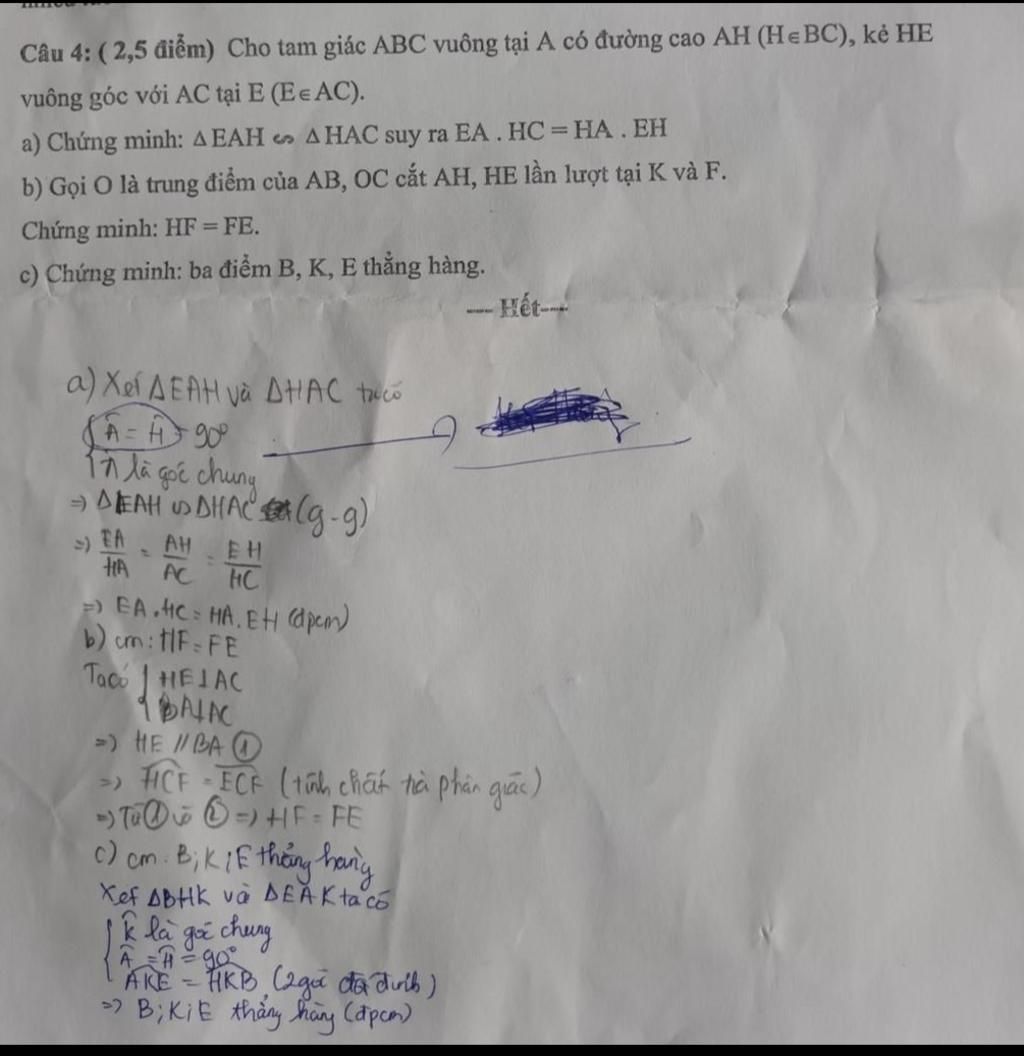 Câu 4: ( 2,5 điểm) Cho tam giác ABC vuông tại A có đường cao AH (H∈BC), kẻ HE
vuông góc với AC tại E (E∈AC).
a) Chứng minh: Δ EAH ∽ Δ HAC suy ra EA . HC = HA . EH
b) Gọi O là trung điểm của AB, OC cắt AH, HE lần lượt tại K và F.
Chứng minh: HF = FE.
c) Chứng minh: ba điểm B, K, E thẳng hàng.
---- Hết----
a) Xét ΔEAH và ΔHAC ta có
{ Â = Ĥ = 90°
là góc chung
=> ΔEAH ∽ ΔHAC (g-g)
=> EA/HA = AH/AC = EH/HC
=> EA.HC = HA.EH (đpcm)
b) cm: HF = FE
Ta có { HE⊥AC
BA⊥AC
=> HE // BA ①
=> HCF = ECF (tính chất tia phân giác)
=> Từ ① và ② => HF = FE
c) cm: B;K;E thẳng hàng
Xét ΔBHK và ΔEAK ta có
{ K̂ là góc chung
Â = Ĥ = 90°
AKE = HKB (2 góc đối đỉnh)
=> B;K;E thẳng hàng (đpcm)